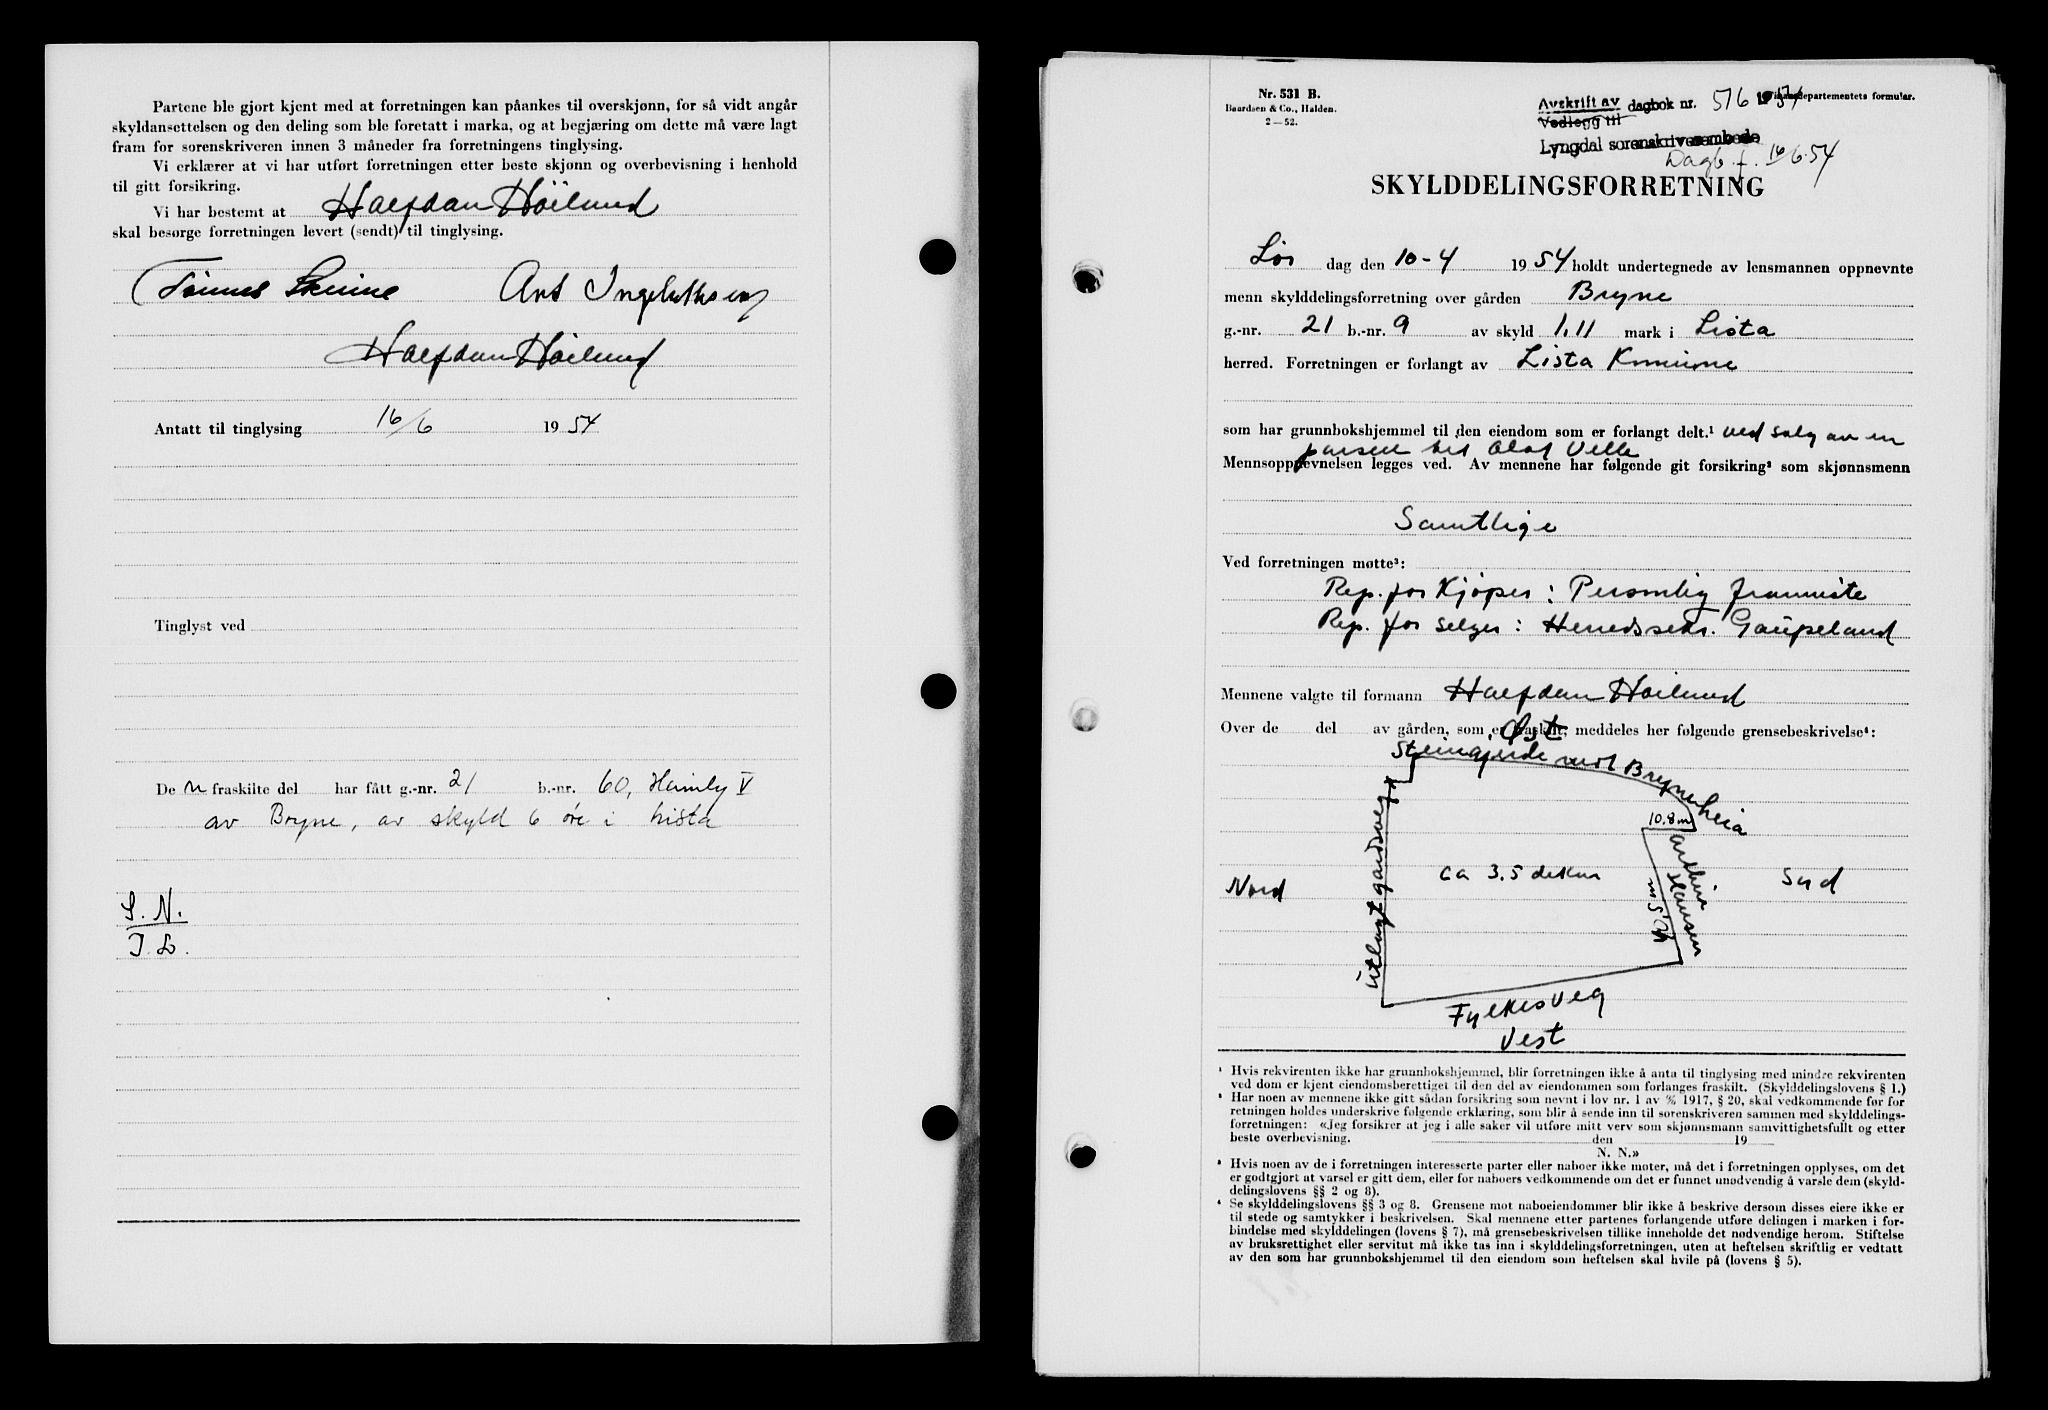 Partene ble gjort kjent med at forretningen kan påankes til overskjønn, for så vidt angår
skyldansettelsen og den deling som ble foretatt i marka, og at begjæring om dette må være lagt
fram for sorenskriveren innen 3 måneder fra forretningens tinglysing.
Vi erklærer at vi har utført forretningen etter beste skjønn og overbevisning i henhold
til gitt forsikring.
Vi har bestemt at Halfdan Höilund
skal besørge forretningen levert (sendt) til tinglysing.
Tönnes Ant Ingebretsen
Halfdan Höilund
Antatt til tinglysing 16/6 1954
Tinglyst ved
De n fraskilte del har fått g.-nr. 21 b.-nr. 60, Heimly V
av Bryne, av skyld 6 øre i Lista
S. N.
J. L.
Nr. 531 B.
Baardsen & Co., Halden.
2—52.
Finansdepartementets formular.
Avskrift av dagbok nr. 516 1954
Vedlegg til
Lyngdal sorenskriverembede
Dagb. f. 16/6.54
SKYLDDELINGSFORRETNING
Lör dag den 10-4 1954 holdt undertegnede av lensmannen oppnevnte
menn skylddelingsforretning over gården Bryne
g.-nr. 21 b.-nr. 9 av skyld 1.11 mark i Lista
herred. Forretningen er forlangt av Lista Kommune
som har grunnbokshjemmel til den eiendom som er forlangt delt.¹ ved salg av en
parsell til Olaf Velle
Mennsoppnevnelsen legges ved. Av mennene har følgende git forsikring² som skjønnsmenn
Samtlige
Ved forretningen møtte³:
Rep. for Kjöper: Personlig frammöte
Rep. for selger: Herredssekr. Gaupeland
Mennene valgte til formann Halfdan Höilund
Over de del av gården, som er fraskilt, meddeles her følgende grensebeskrivelse⁴:
Øst
Steingjerde mot Bryneheia
10.8 m
Utlagt gardsveg
Nord
ca 3.5 dekar
Hansen
Syd
Fylkesveg
Vest
¹ Hvis rekvirenten ikke har grunnbokshjemmel, blir forretningen ikke å anta til tinglysing med mindre rekvirenten
ved dom er kjent eiendomsberettiget til den del av eiendommen som forlanges fraskilt. (Skylddelingslovens § 1.)
² Har noen av mennene ikke gitt sådan forsikring som nevnt i lov nr. 1 av 1917, § 20, skal vedkommende før for
retningen holdes underskrive følgende erklæring, som blir å sende inn til sorenskriveren sammen med skylddelings-
forretningen: «Jeg forsikrer at jeg i alle saker vil utføre mitt verv som skjønnsmann samvittighetsfullt og etter
beste overbevisning. den 19
N. N.»
³ Hvis noen av de i forretningen interesserte parter eller naboer ikke møter, må det i forretningen opplyses, om det
er godtgjort at varsel er gitt dem, eller for naboers vedkommende om det er funnet unødvendig å varsle dem (skyld-
delingslovens §§ 2 og 8).
⁴ Se skylddelingslovens §§ 3 og 8. Grensene mot naboeiendommer blir ikke å beskrive dersom disses eiere ikke er
til stede og samtykker i beskrivelsen. Skal mennene etter partenes forlangende utføre delingen i marken i for-
bindelse med skylddelingen (lovens § 7), må grensebeskrivelsen tillike inneholde det nødvendige herom. Stiftelse
av bruksrettighet eller servitut må ikke tas inn i skylddelingsforretningen, uten at heftelsen skriftlig er vedtatt
av den som har grunnbokshjemmel til den eiendom som heftelsen skal hvile på (lovens § 5).